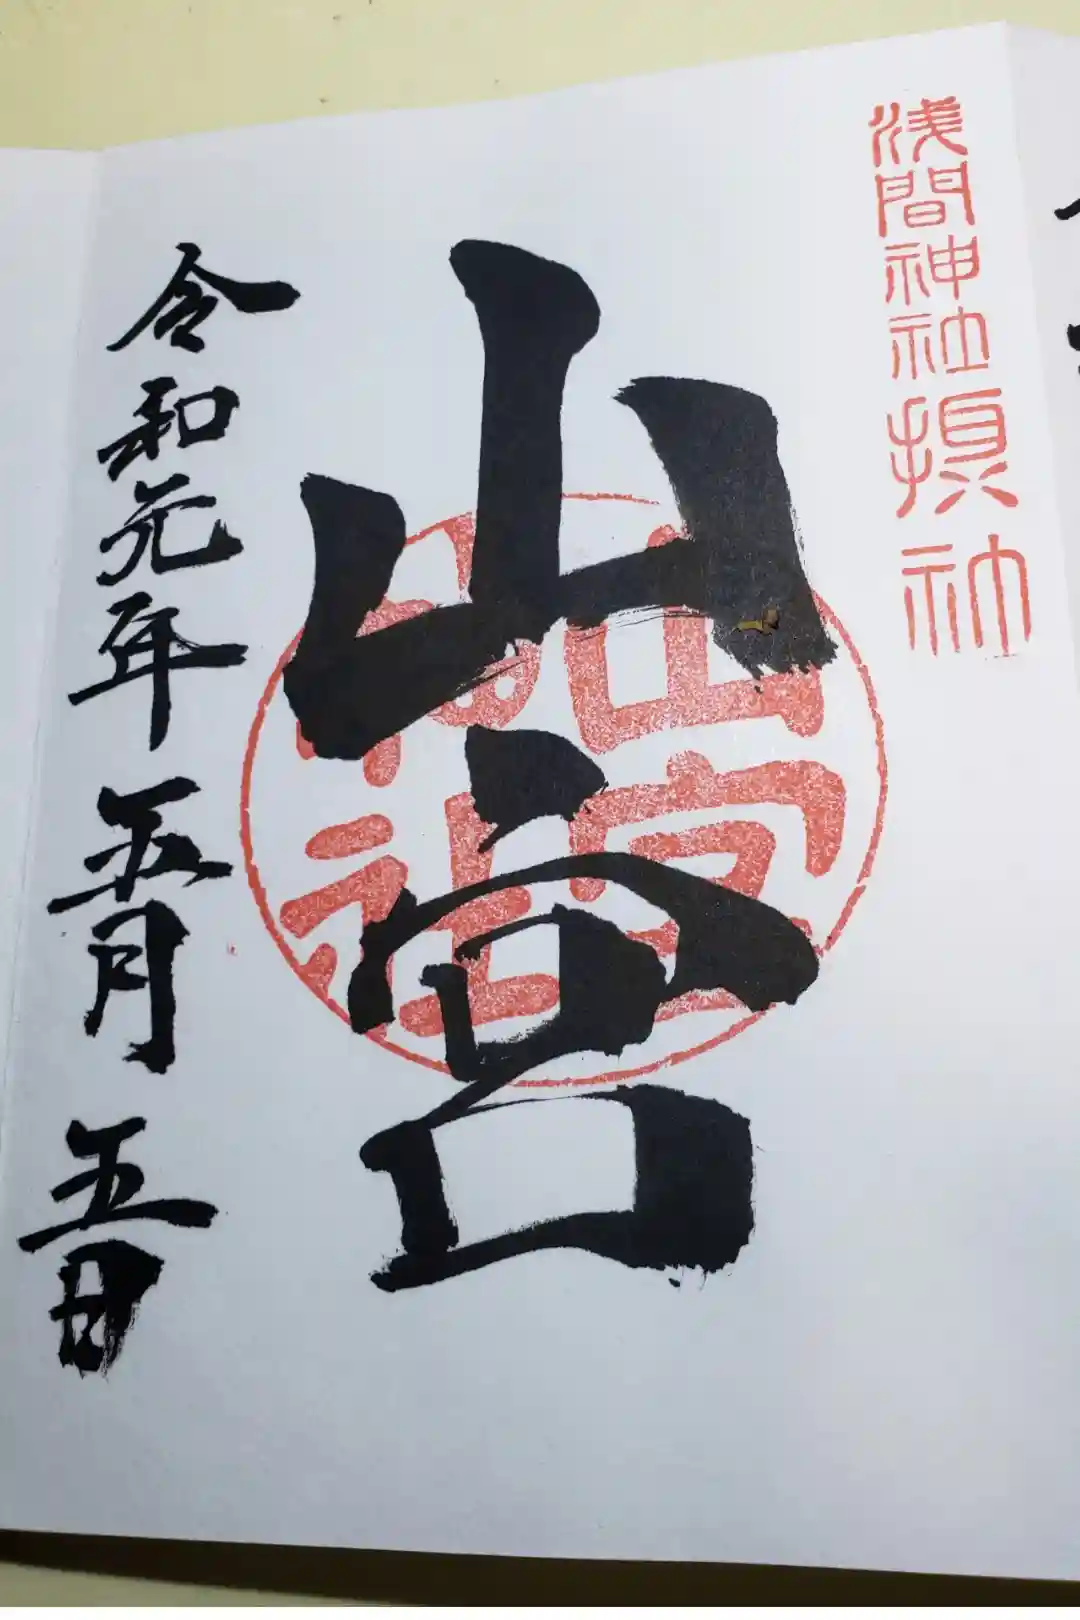 浅間神社摂社
山宮
山宮
神社
令和元年五月五日